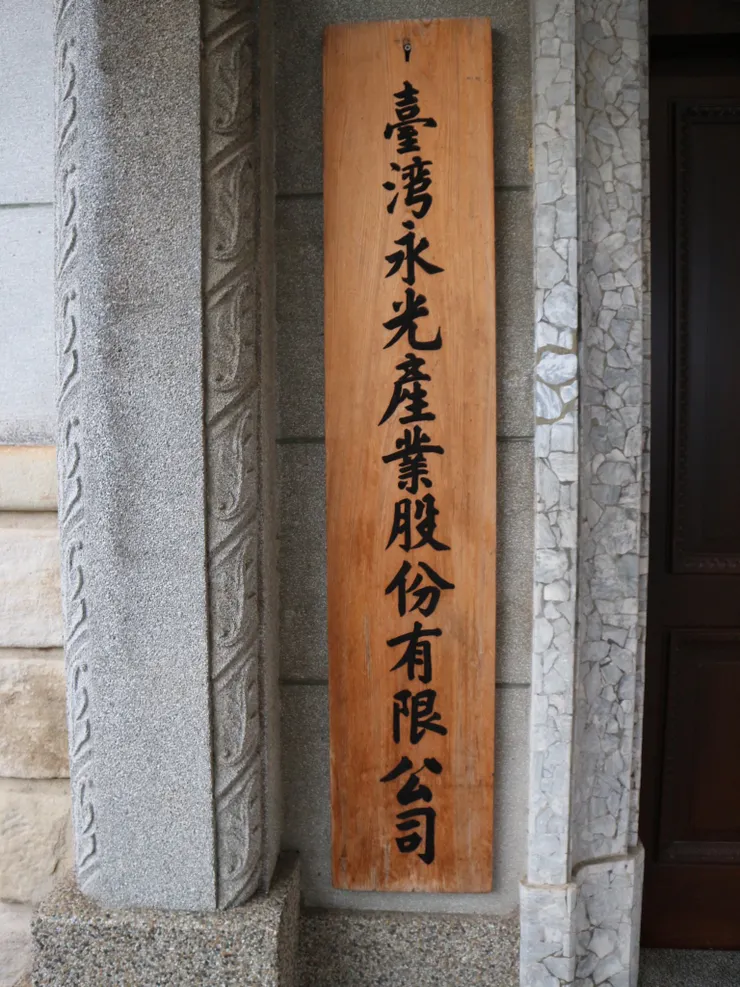 臺湾永光產業股份有限公司